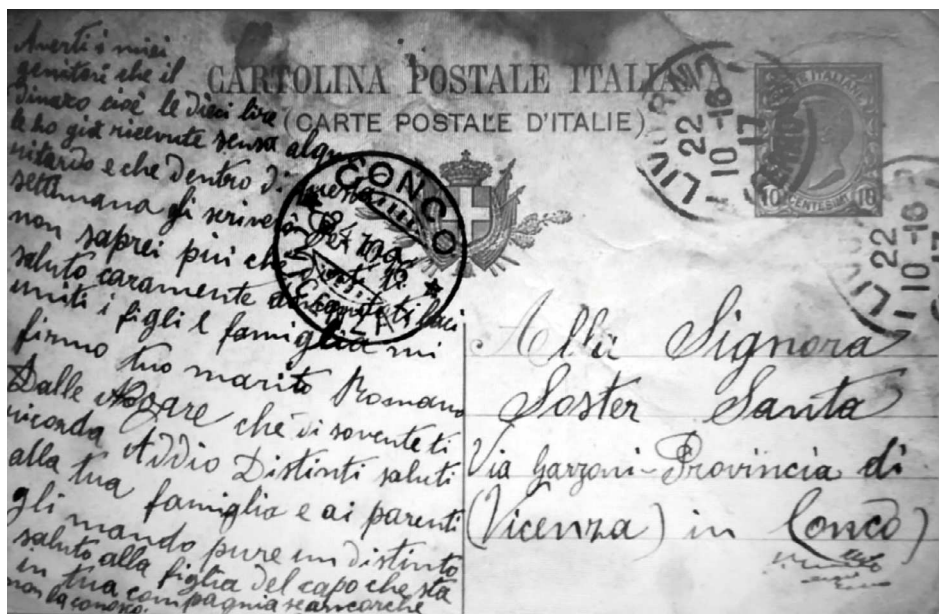 Averti i miei
genitori che il
dinaro cioè le dieci lire
le ho già ricevute senza alqu
ritardo e che dentro di questa
settimana gli scriverò
non saprei più che dirti ti
saluto caramente baci
uniti i figli e famiglia mi
firmo tuo marito Romano
Dalle Nogare che di sovente ti
ricorda Addio Distinti saluti
alla tua famiglia e ai parenti
gli mando pure un distinto
saluto alla figlia del capo che sta
in tua compagnia seancorche
non la conosco.
CARTOLINA POSTALE ITALIANA
(CARTE POSTALE D'ITALIE)
LIVORNO
22
10-16
17
10 CENTESIMI 10
LIVORNO
22
10-16
17
CONCO
Alla Signora
Soster Santa
Via Garzoni-Provincia di
(Vicenza) in Conco